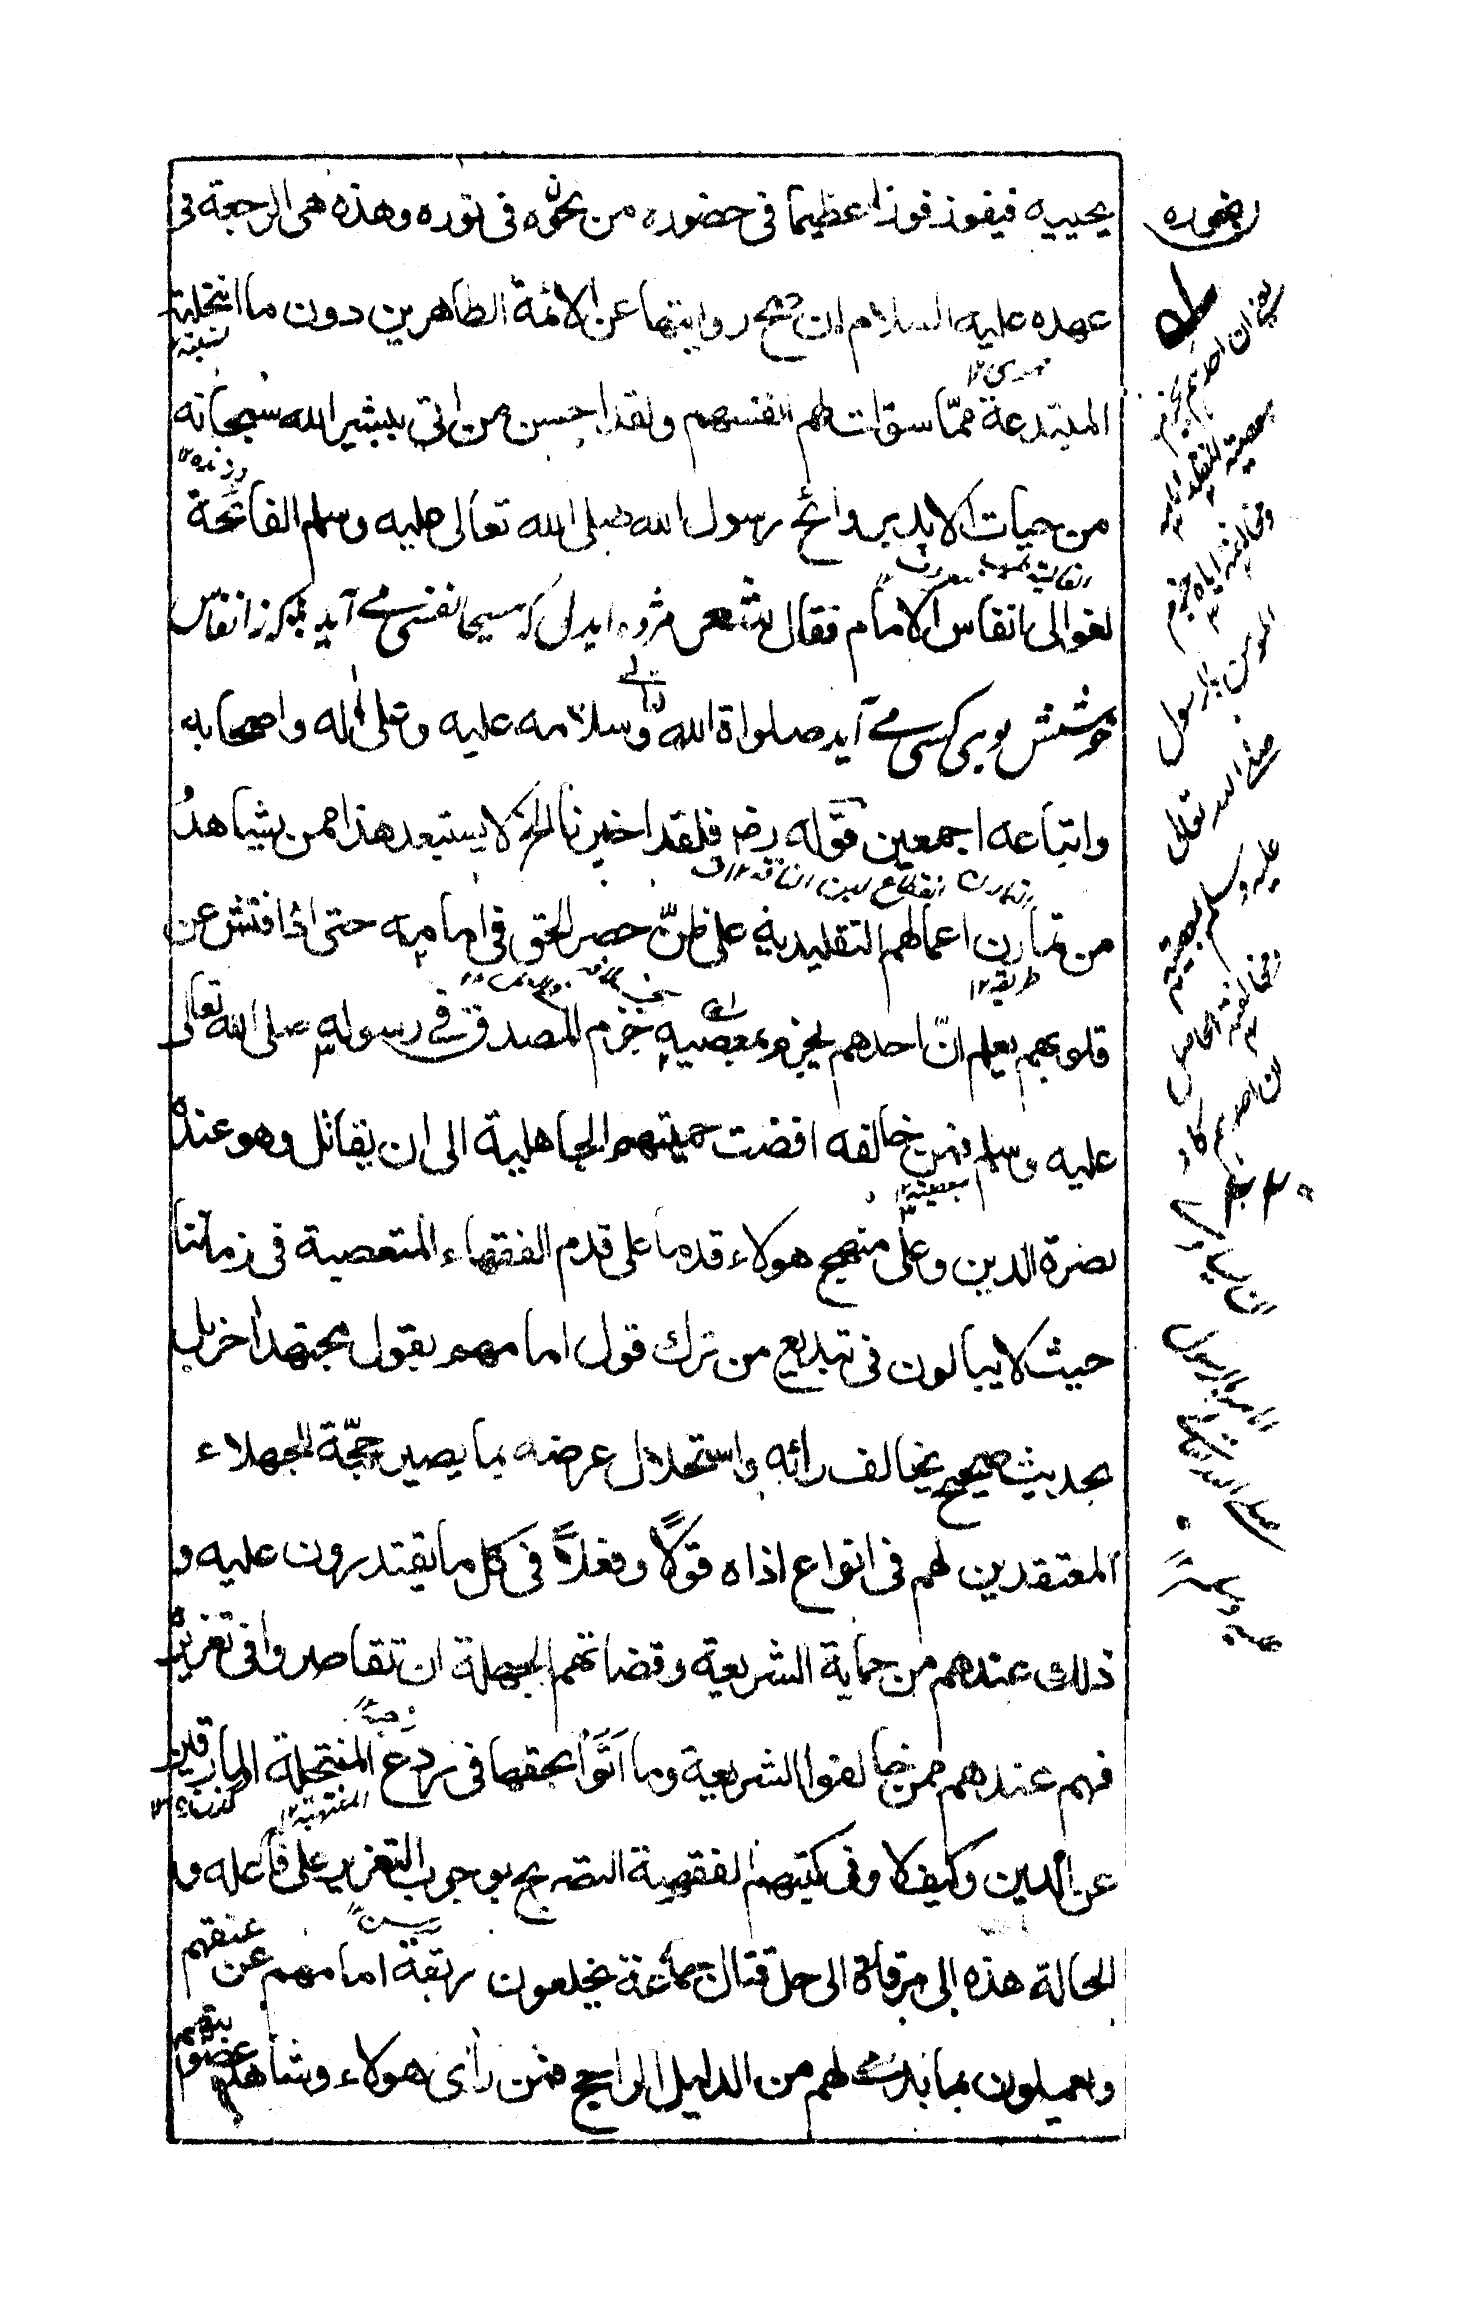 يحييه فيفوز فوزا عظيما فى حضوره من نحوه فى نوره وهذه هى الرجعة فى
عهده عليه السلام ان صح روايتها عن الائمة الطاهرين دون ما انتحلته
المبتدعة مما سولت لهم انفسهم ولقد احسن من اتى يبشير الله سبحانه
من حيات الابد بروائح رسول الله صلى الله تعالى عليه وسلم الفاتحة
لغوالى بانفاس الامام فقال شعر مژده ايدل كه مسيحا نفسى مے آيد كه ز انفاس
خوشش بوى كسى مے آيد صلواة الله تعالى وسلامه عليه وعلى اله واصحابه
واتباعه اجمعين قوله رضـ فلقد اخبرنا الخ لا يستبعد هذا ممن يشاهد
من تمارن اعمالهم التقليدية على ظن حصر الحق فى امامهم حتى اذا فتش عن
قلوبهم يعلم ان احدهم يجزم بمعصية جزم المصدق فى رسوله صلى الله تعالى
عليه وسلم فمن خالفه افضت حميتهم الجاهلية الى ان يقاتل وهو عنده
نصرة الدين وعلى منهج هولاء قدما على قدم الفقهاء المتعصبة فى زماننا
حيث لا يبالون فى تبديع من ترك قول امامهم بقول مجتهد اخر بل
بحديث صحيح يخالف رائه واستحلال عرضه بما يصير حجة للجهلاء
المعتقدين لهم فى انواع اذاه قولا وفعلا فى كل ما يقتدرون عليه و
ذلك عندهم من حماية الشريعة وقضاتهم الجهلة ان تقاصروا فى تعزيره
فهم عندهم ممن خالفوا الشريعة وما اتوا بحقها فى ردع المنتحلة المارقين
عن الدين وكيف لا وفى كتبهم الفقهية التصريح بوجوب التعزير على فاعله و
الحالة هذه الى مرقاة الى حل قتال جماعة يخلعون ربقة امامهم عن عنقهم
ويعملون بما بدے لهم من الدليل الراجح فمن رأى هولاء وشاهد
حضوره
يعنے ان احدهم يجزم
بعصمة
ومخالفته اياه جزم
المومن بالرسول
صلے الله تعالى
عليه وسلم بعصمته
ان احدهم كاد
صلے الله تعالى
عليه وسلم